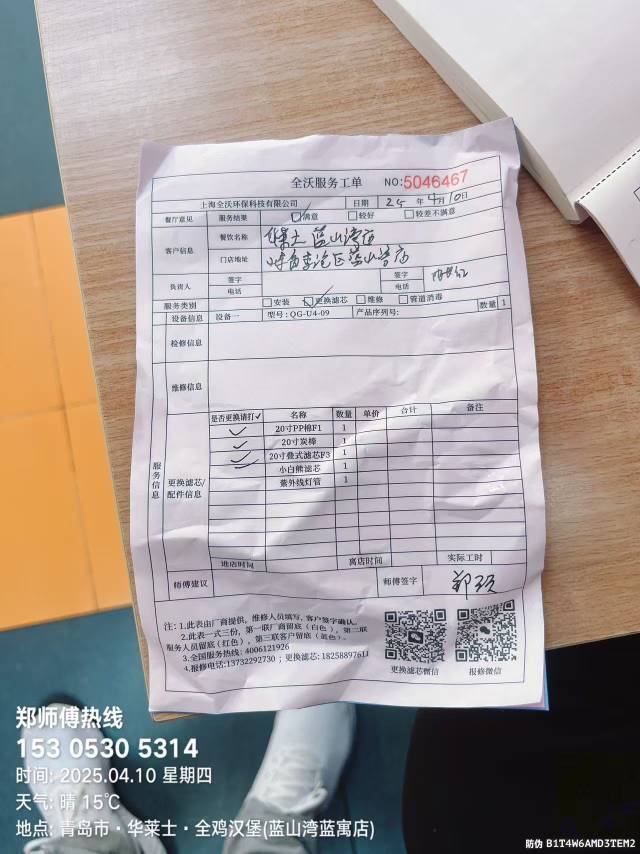 全沃服务工单 NO:5046467
上海全沃环保科技有限公司 日期 25 年 4月 10日
餐厅意见 服务结果 ☑满意 □较好 □较差不满意
客户信息 餐饮名称 华莱士 蓝山湾店
门店地址 蓝山湾店
负责人 签字 签字
电话 电话
服务类别 □安装 ☑更换滤芯 □维修 □管道消毒
设备信息 设备一 型号:QG-U4-09 产品序列号: 数量 1
检修信息
维修信息
服务信息
更换滤芯/配件信息
是否更换请打✓ 名称 数量 单价 合计 备注
✓ 20寸PP棉F1 1
✓ 20寸炭棒 1
✓ 20寸叠式滤芯F3 1
✓ 小白熊滤芯 1
紫外线灯管 1
进店时间 离店时间 实际工时
师傅建议 师傅签字
注:1.此表由厂商提供,维修人员填写,客户签字确认。
2.此表一式三份,第一联厂商留底(白色),第二联
服务人员留底(红色),第三联客户留底(蓝色)。
3.全国服务热线:4006121926
4.报修电话:13732292730 ; 更换滤芯:18258897611
更换滤芯微信 报修微信
郑师傅热线
153 0530 5314
时间: 2025.04.10 星期四
天气: 晴 15℃
地点: 青岛市·华莱士·全鸡汉堡(蓝山湾蓝寓店)
防伪 B1T4W6AMD3TEM2